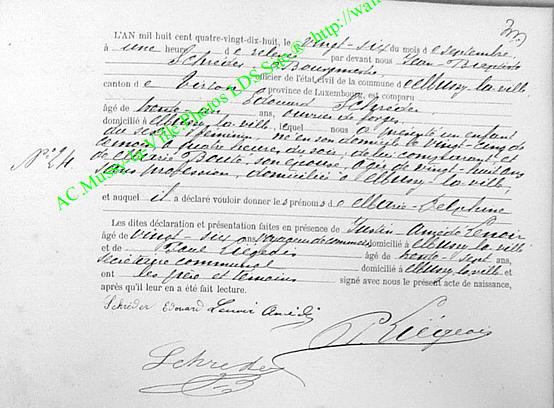 L'AN mil huit cent quatre-vingt-dix-huit, le vingt-six du mois de septembre,
à une heure de relevée par devant nous Jean-Baptiste
Schréder, Bourgmestre officier de l'état civil de la commune de Mussy-la-ville
canton de Virton province de Luxembourg, est comparu
Edouard Schréder,
âgé de trente ans, ouvrier de forges,
domicilié à Mussy-la-ville, lequel nous a présenté un enfant
du sexe féminin né en son domicile le vingt-cinq de
ce mois à quatre heures du soir, de lui comparant et
N° 24
de Marie son épouse, âgée de vingt-huit ans
sans profession, domiciliée à Mussy-la-ville,
et auquel il a déclaré vouloir donner les prénoms de Marie-Delphine
Les dites déclaration et présentation faites en présence de Justin-Amédé Lenoir
âgé de vingt-six ans voyageur de commerce domicilié à Mussy-la-ville
et de Liégeois âgé de trente-sept ans,
secrétaire communal domicilié à Mussy-la-ville et
ont les père et témoins signé avec nous le présent acte de naissance,
après qu'il leur en a été fait lecture.
Schréder Edouard Lenoir Amédé
Liégeois
Schréder
AC.Mussy-la-Ville Photos LDS Saps® http://wal